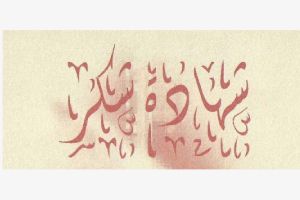 شهادة شكر